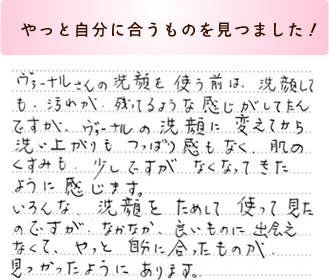 やっと自分に合うものを見つました！
ヴァーナルさんの洗顔を使う前は、洗顔して
も、汚れが、残ってるような感じがしてたん
ですが、ヴァーナルの洗顔に変えてから
洗い上がりもつっぱり感もなく、肌の
くすみも、少しですがなくなってきた
ように感じます。
いろんな、洗顔をためして使って見た
のですが、なかなか、良いものに出会え
なくて、やっと自分に合ったものが、
見つかったようにあります。